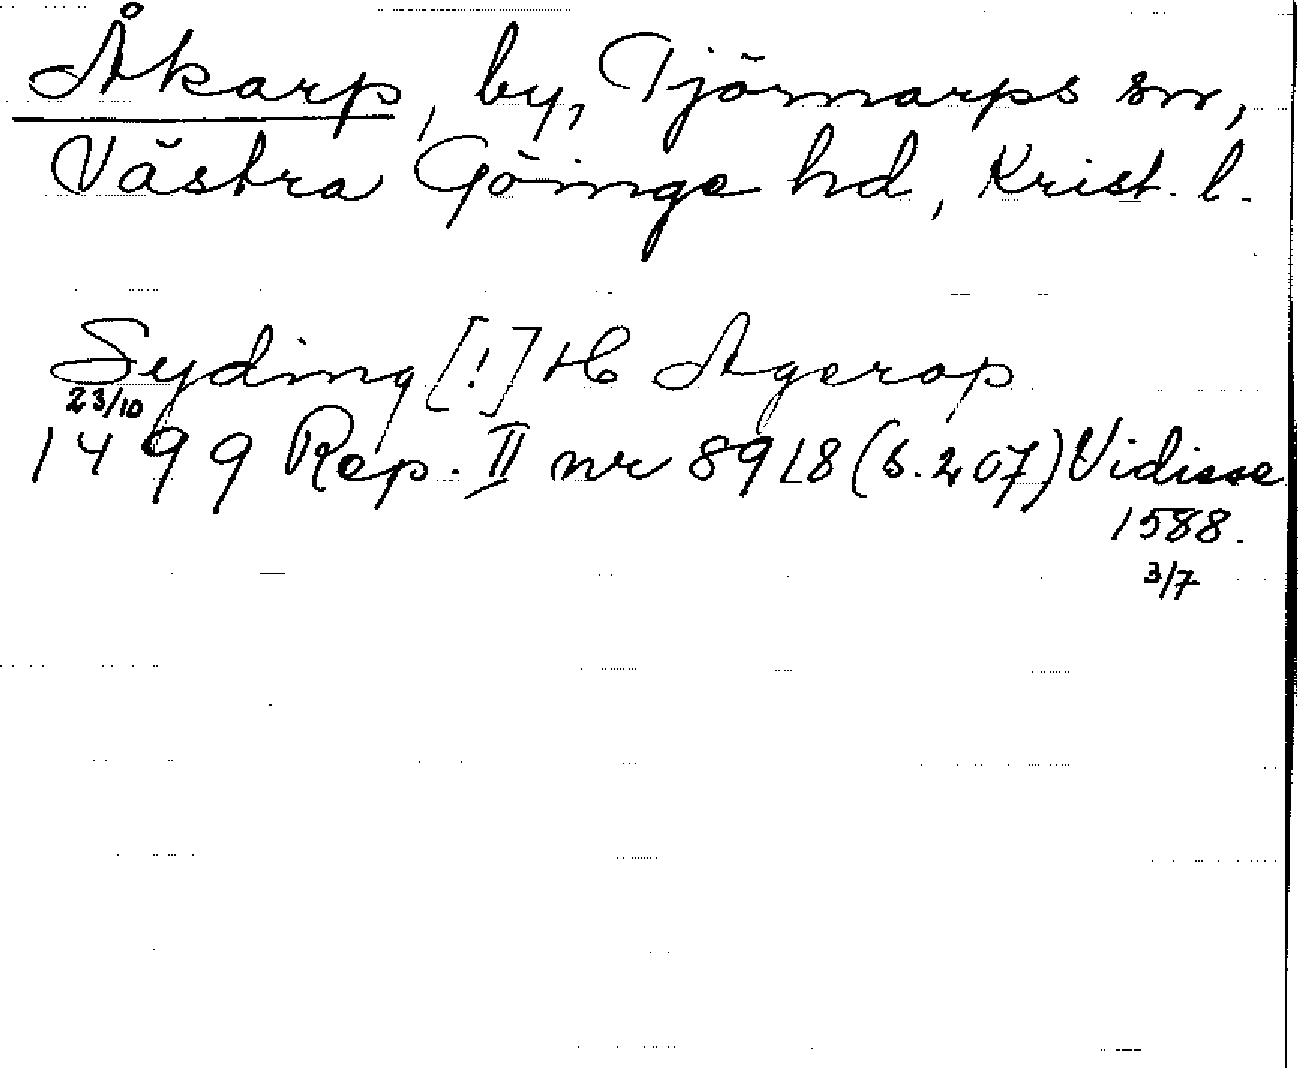 Åkarp, by, Tjörnarps sn,
Västra Göinge hd, Krist. l.
Syding [!] H Agerop
23/10
1499 Rep. II nr 8918 (s. 207) Vidisse
1588.
3/7